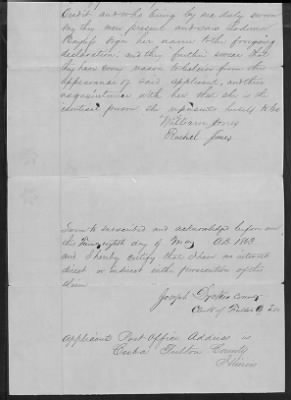 Credit and who being by me duly sworn
Say they were present and saw Ladina
sign her name to the foregoing
declaration, and they further swear that
they have every reason to believe from the
appearance of said applicant, and their
acquaintance with her that she is the
identical person she represents herself to be
William Jones
Rachel Jones
Sworn to subscribed and acknowledged before me
the day of May A.D. 1863
and I hereby certify that I have no interest
direct or indirect in the prosecution of this
claim
Joseph
Clerk of
Applicants Post Office Address is
Cuba Fulton County
Illinois